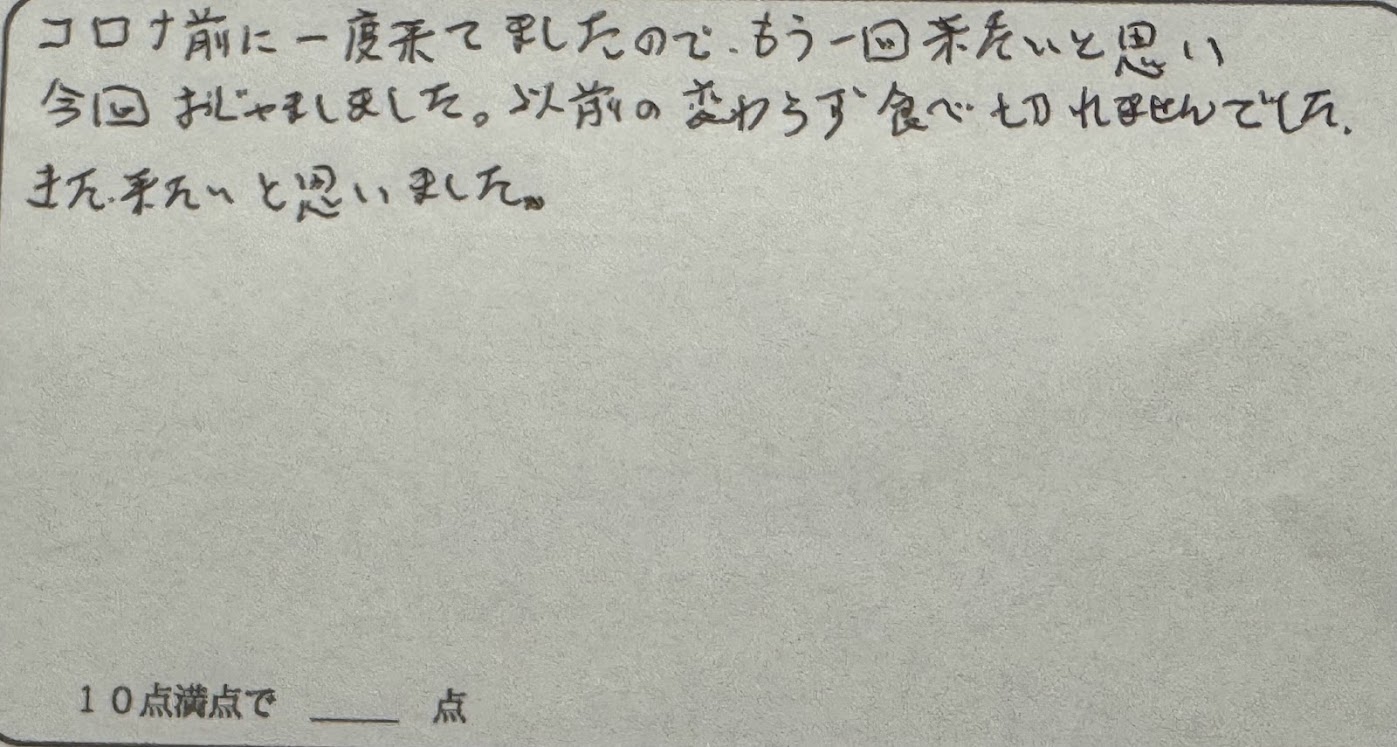 コロナ前に一度来てましたので、もう一回来たいと思い
今回おじゃましました。以前の変わらず食べ切れませんでした。
また、来たいと思いました。
10点満点で ____ 点